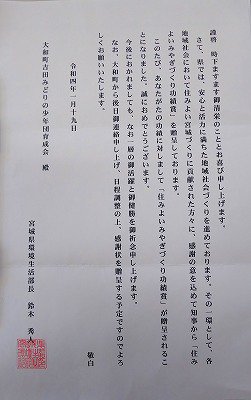 謹啓 時下ます御清栄のこととお喜び申し上げます。
さて、県では、安心と活力に満ちた地域社会づくりを進めております。その一環として、各
地域社会において住みよい宮城づくりに貢献された方々に、感謝の意を込めて知事から「住み
よいみやぎづくり功績賞」を贈呈しております。
このたび、あなたがたの功績に対しまして「住みよいみやぎづくり功績賞」が贈呈されるこ
とになりました。誠におめでとうございます。
今後におかれましても、なお一層の御活躍と御健勝を御祈念申し上げます。
なお、大和町から後日御連絡申し上げ、日程調整の上、感謝状を贈呈する予定ですのでよろ
しくお願いいたします。
敬白
令和四年 月十九日
大和町吉田みどりの少年団育成会 殿
宮城県環境生活部長 鈴木 秀